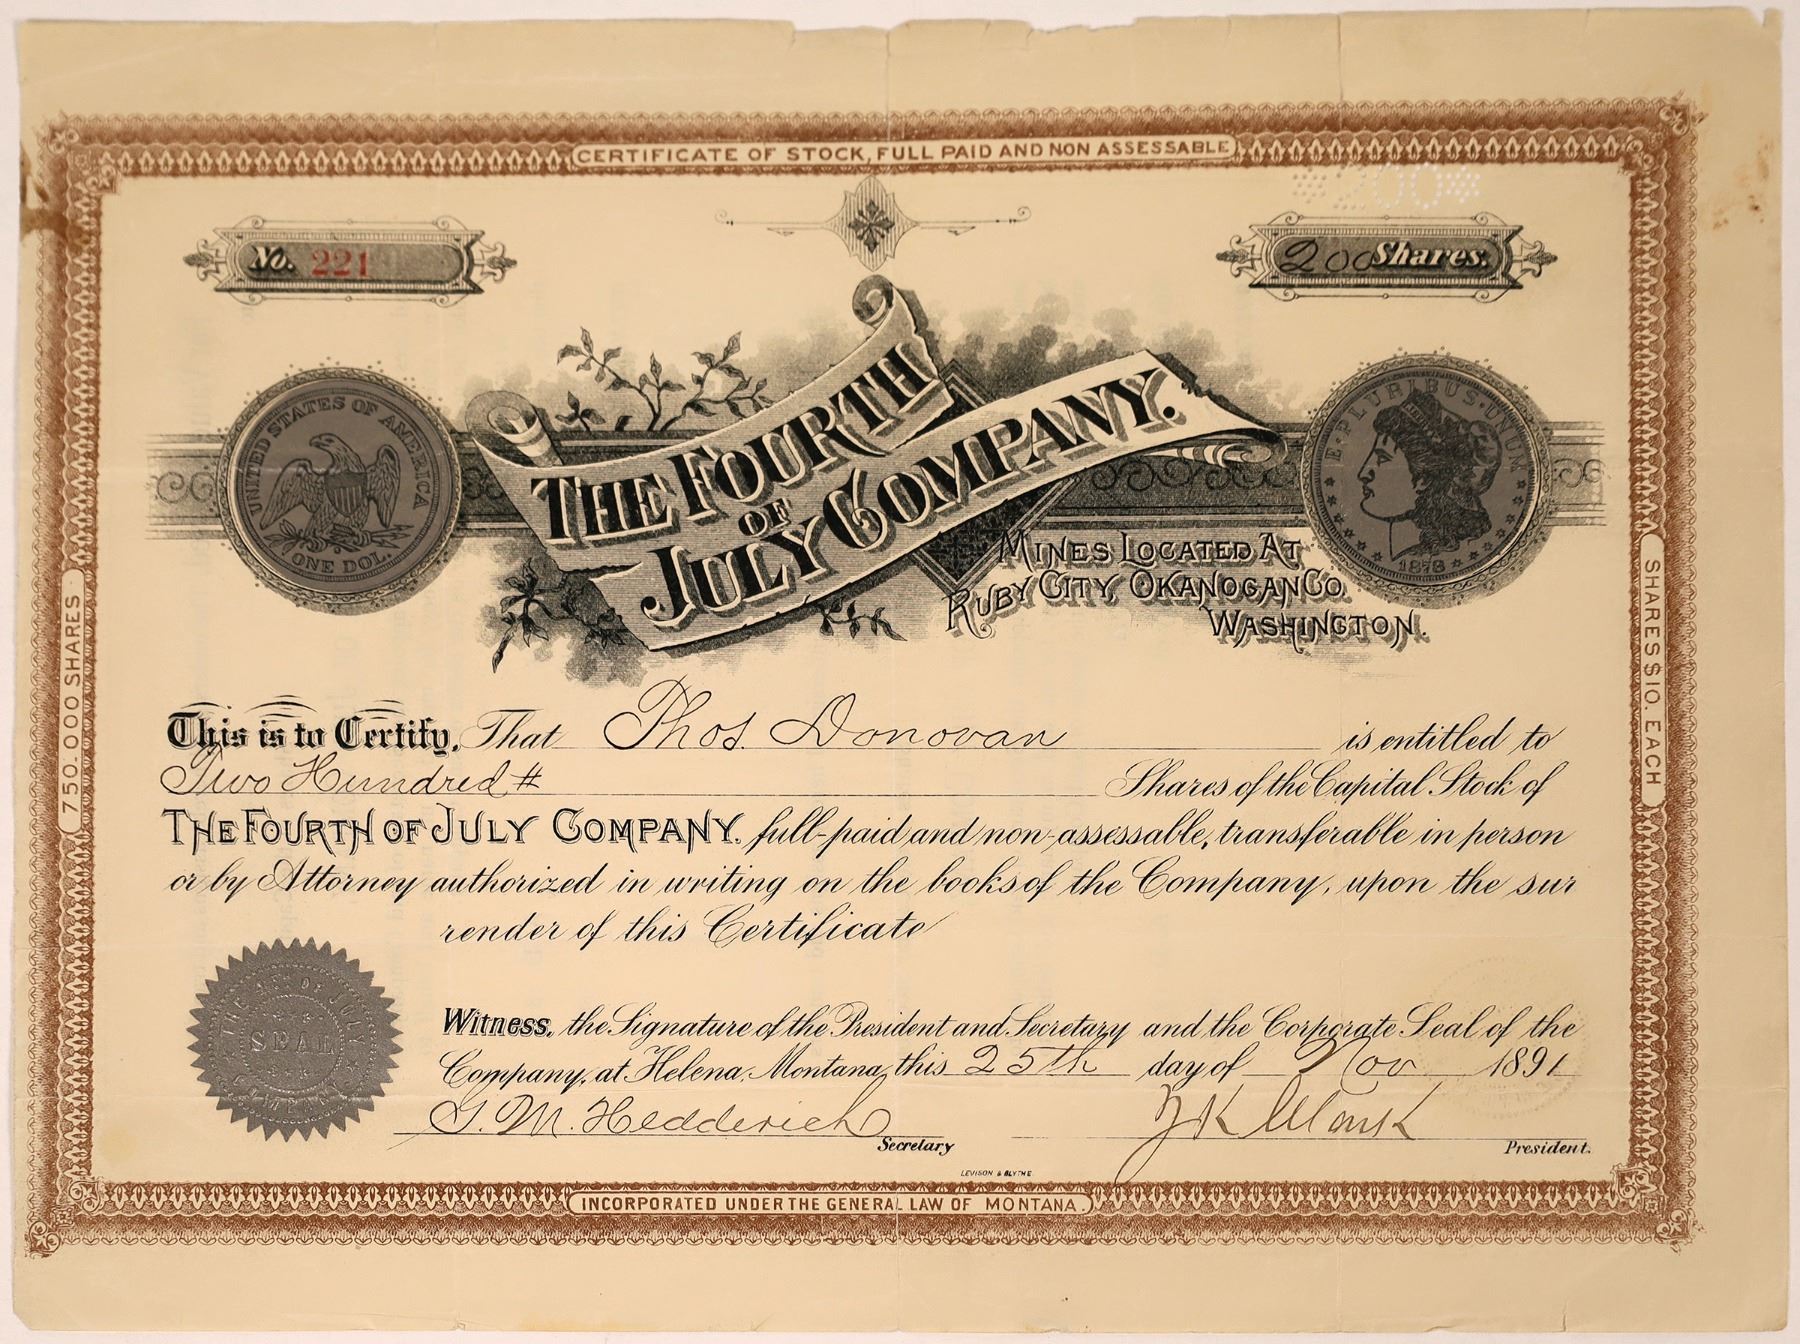 CERTIFICATE OF STOCK, FULL PAID AND NON ASSESSABLE
*200*
No. 221
200 Shares.
UNITED STATES OF AMERICA
ONE DOL.
THE FOURTH
OF
JULY COMPANY.
E·PLURIBUS·UNUM
1878
MINES LOCATED AT
RUBY CITY, OKANOGAN CO.
WASHINGTON.
750.000 SHARES
SHARES $10. EACH
This is to Certify, That Thos. Donovan is entitled to
Two Hundred # Shares of the Capital Stock of
THE FOURTH OF JULY COMPANY. full-paid and non-assessable, transferable in person
or by Attorney authorized in writing on the books of the Company, upon the sur
render of this Certificate
SEAL
COMPANY
Witness, the Signature of the President and Secretary and the Corporate Seal of the
Company, at Helena, Montana, this 25th day of Nov 1891
Secretary
President.
LEVISON & BLYTHE
INCORPORATED UNDER THE GENERAL LAW OF MONTANA.